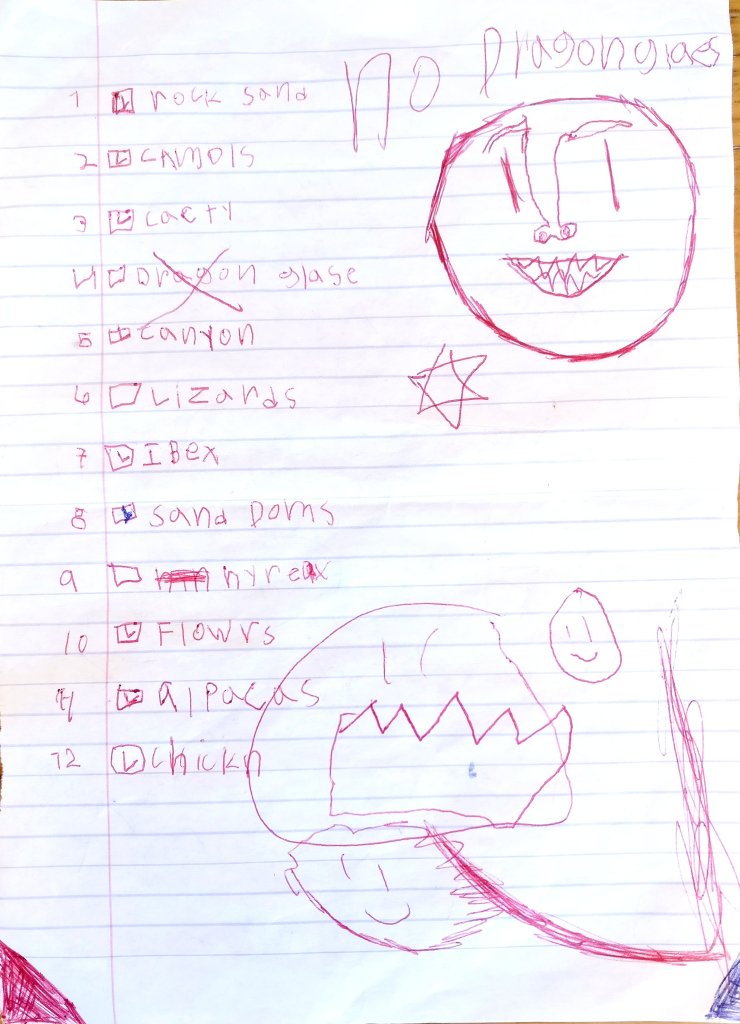 no Dragonglaes
1 rock sand
2 CAMOIS
3 cacty
4 Dragon glase
5 canyon
6 Lizards
7 IBex
8 sand Doms
9 hyrex
10 Flowrs
11 alpacas
12 chickn